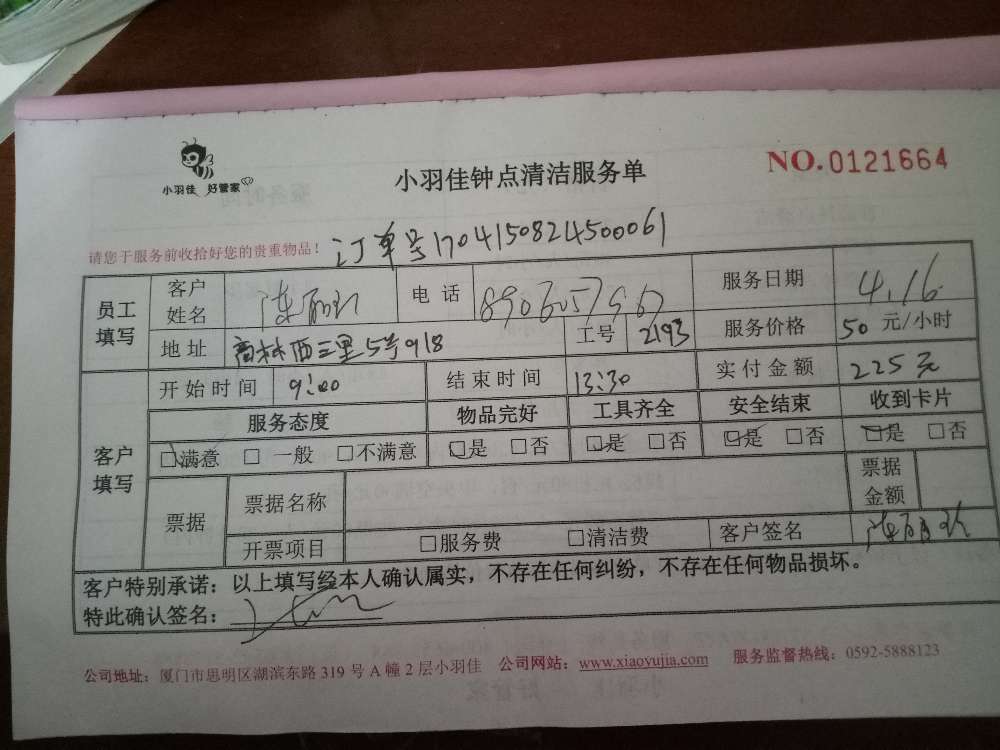 小羽佳 好管家
小羽佳钟点清洁服务单
NO.0121664
请您于服务前收拾好您的贵重物品！
订单号1704150824500061
员工填写 客户姓名 陈 电话 服务日期 4.16
地址 西三里5号918 工号 2193 服务价格 50 元/小时
客户填写 开始时间 9:00 结束时间 13:30 实付金额 225元
服务态度 物品完好 工具齐全 安全结束 收到卡片
☑满意 □ 一般 □不满意 ☑是 □否 ☑是 □否 ☑是 □否 ☑是 □否
票据 票据名称 票据金额
开票项目 □服务费 □清洁费 客户签名 陈
客户特别承诺：以上填写经本人确认属实，不存在任何纠纷，不存在任何物品损坏。
特此确认签名：
公司地址：厦门市思明区湖滨东路 319 号 A 幢 2 层小羽佳 公司网站：www.xiaoyujia.com 服务监督热线：0592-5888123